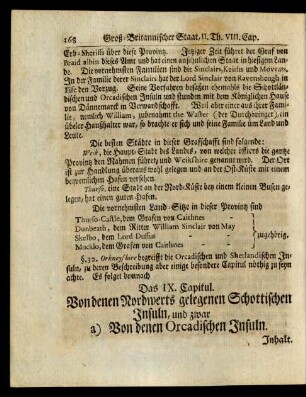 168 Groß-Britannischer Staat, II. Th. VIII. Cap.
Erb-Sheriffs über diese Provintz. Jetziger Zeit führet der Graf von
Braid albin dieses Amt und hat einen ansehnlichen Staat in hiesigen
Lande. Die vornehmsten Familien sind die Sinclairs, Keichs und Movrats.
In der Familie derer Sinclairs hat der Lord Sinclair von Ravensheugh in
Fife den Vorzug. Seine Vorfahren besaßen ehemals die Schottlän-
dischen und Orcadischen Insuln und stunden mit dem Königlichen Hause
von Dännemarck in Verwandschafft. Weil aber einer aus ihrer Fami-
lie, nemlich William, zubenahmt the Waster (der Durchbringer), ein
übeler Haußhalter war, so brachte er sich und seine Familie um Land und
Leute.
Die besten Städte in dieser Grafschafft sind folgende:
Weik, die Haupt-Stadt des Landes, von welcher öffters die gantze
Provintz den Nahmen führet, und Weikshire genannt wird. Der Ort
ist zur Handlung überaus wohl gelegen und an der Ost-Küste mit einem
bequemlichen Hafen versehen.
Thurso, eine Stadt an der Nord-Küste bey einem kleinen Busen ge-
legen, hat einen guten Hafen.
Die vornehmsten Land-Sitze in dieser Provintz sind
Thurso-Castle, dem Grafen von Caithnes
Dunbeath, dem Ritter William Sinclair von May
Skelbo, dem Lord Duffus
Muckle, dem Grafen von Caithnes
zugehörig.
§. 32. Orkney shire begreifft die Orcadischen und Shetlandischen In-
suln, zu deren Beschreibung aber einige besondere Capitul nöthig zu seyn
achte. Es folget demnach
Das IX. Capitul.
Von denen Nordwerts gelegenen Schottischen
Insuln, und zwar
a) Von denen Orcadischen Insuln.
Inhalt.